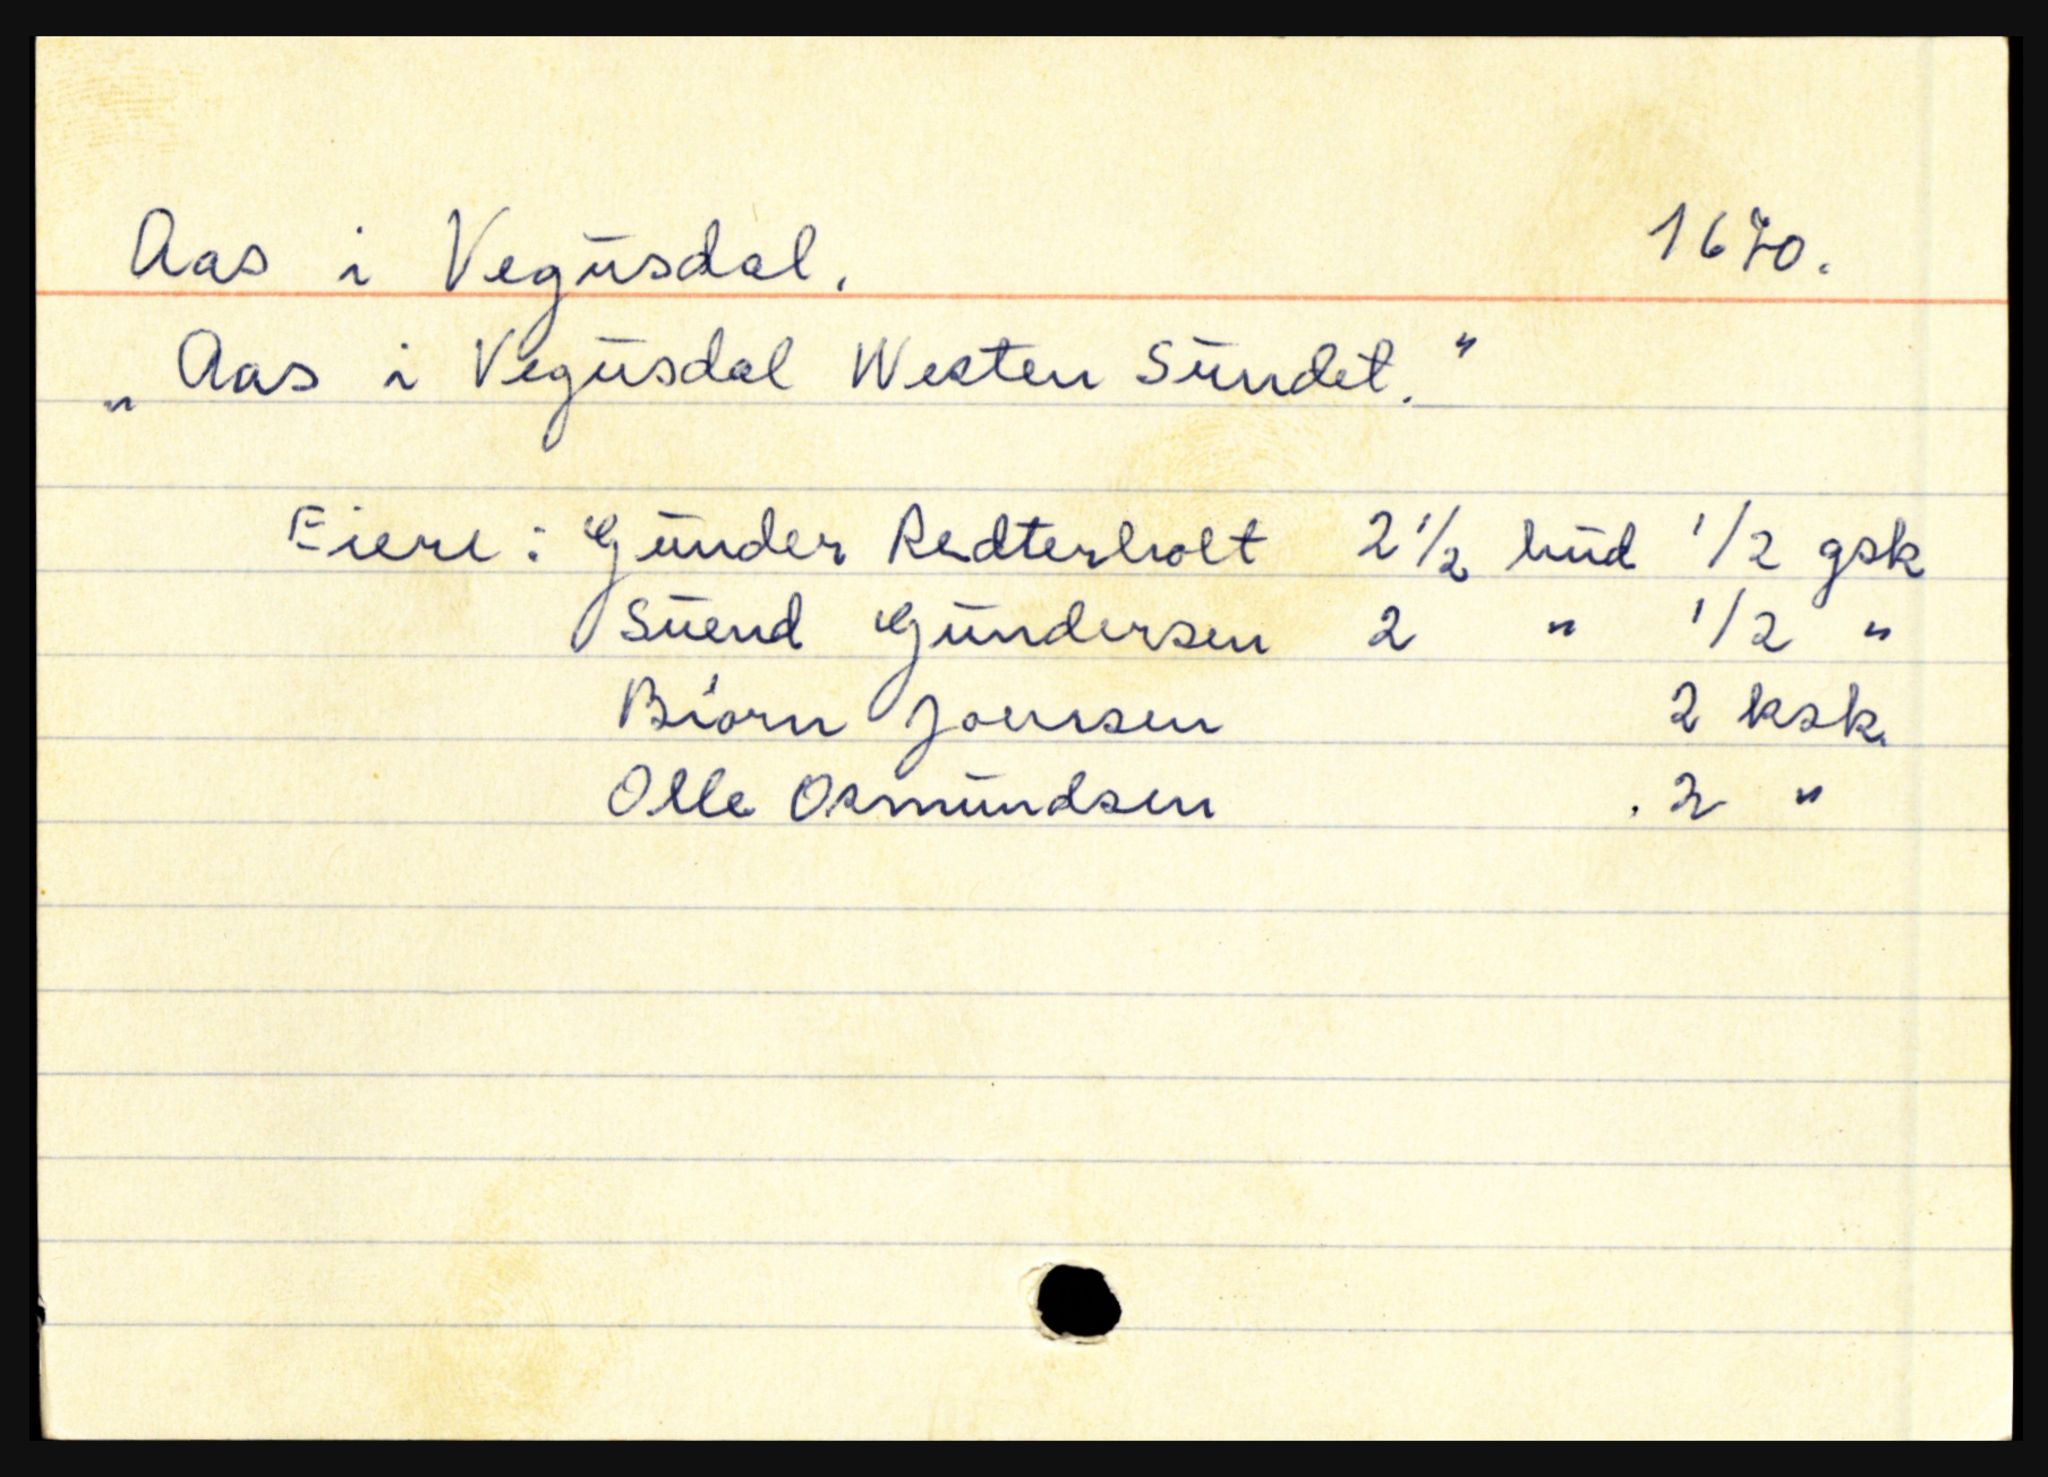 Aas i Vegusdal. 1670.
„Aas i Vegusdal Westen Sundet."
Eiere: Gunder Redterholt 2 1/2 hud 1/2 gsk
Suend Gundersen 2 " 1/2 "
Biorn Joensen 2 ksk.
Olle Osmundsen . 2 "